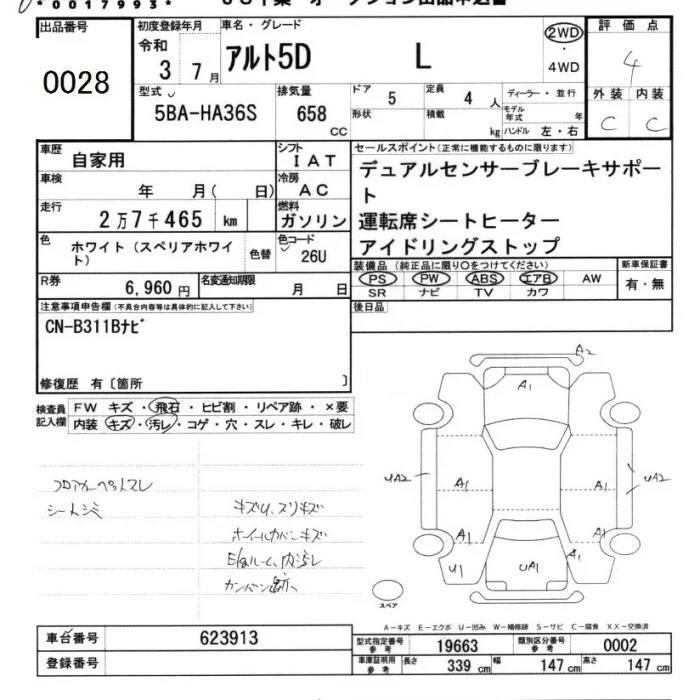 *0017993*
出品番号
0028
初度登録年月
令和
3 7月
車名・グレード
アルト5D L
2WD
・
4WD
評価点
4
外装 内装
C C
型式
5BA-HA36S
排気量
658
CC
ドア
5
定員
4 人
形状
積載
kg
ディーラー・並行
モデル年式 年
ハンドル 左・右
車歴
自家用
シフト
IAT
車検
年 月( 日)
冷房
AC
走行
2万7千465 km
燃料
ガソリン
色
ホワイト(スペリアホワイト)
色替
色コード
26U
R券
6,960円
名変通知期限
月 日
セールスポイント(正常に機能するものに限ります)
デュアルセンサーブレーキサポー
ト
運転席シートヒーター
アイドリングストップ
装備品(純正品に限り○をつけてください)
PS PW ABS エアB AW
SR ナビ TV カワ
新車保証書
有・無
後日品
注意事項申告欄(不具合内容等は具体的に記入して下さい)
CN-B311Bナビ
修復歴 有〔箇所 〕
検査員
記入欄
FW キズ・飛石・ヒビ割・リペア跡・×要
内装 キズ・汚レ・コゲ・穴・スレ・キレ・破レ
フロアカーペットスレ
シートシミ
キズU、スリキズ
ホイールカバーキズ
A2
A1
UA2
A1
A1
UA2
A1
A1
U1
A1
UA1
スペア
A-キズ E-エクボ U-凹み W-補修跡 S-サビ C-腐食 XX-交換済
車台番号
623913
登録番号
型式指定番号
参考
19663
類別区分番号
参考
0002
車庫証明用
参考
長さ 339 cm
幅 147 cm
高さ 147 cm